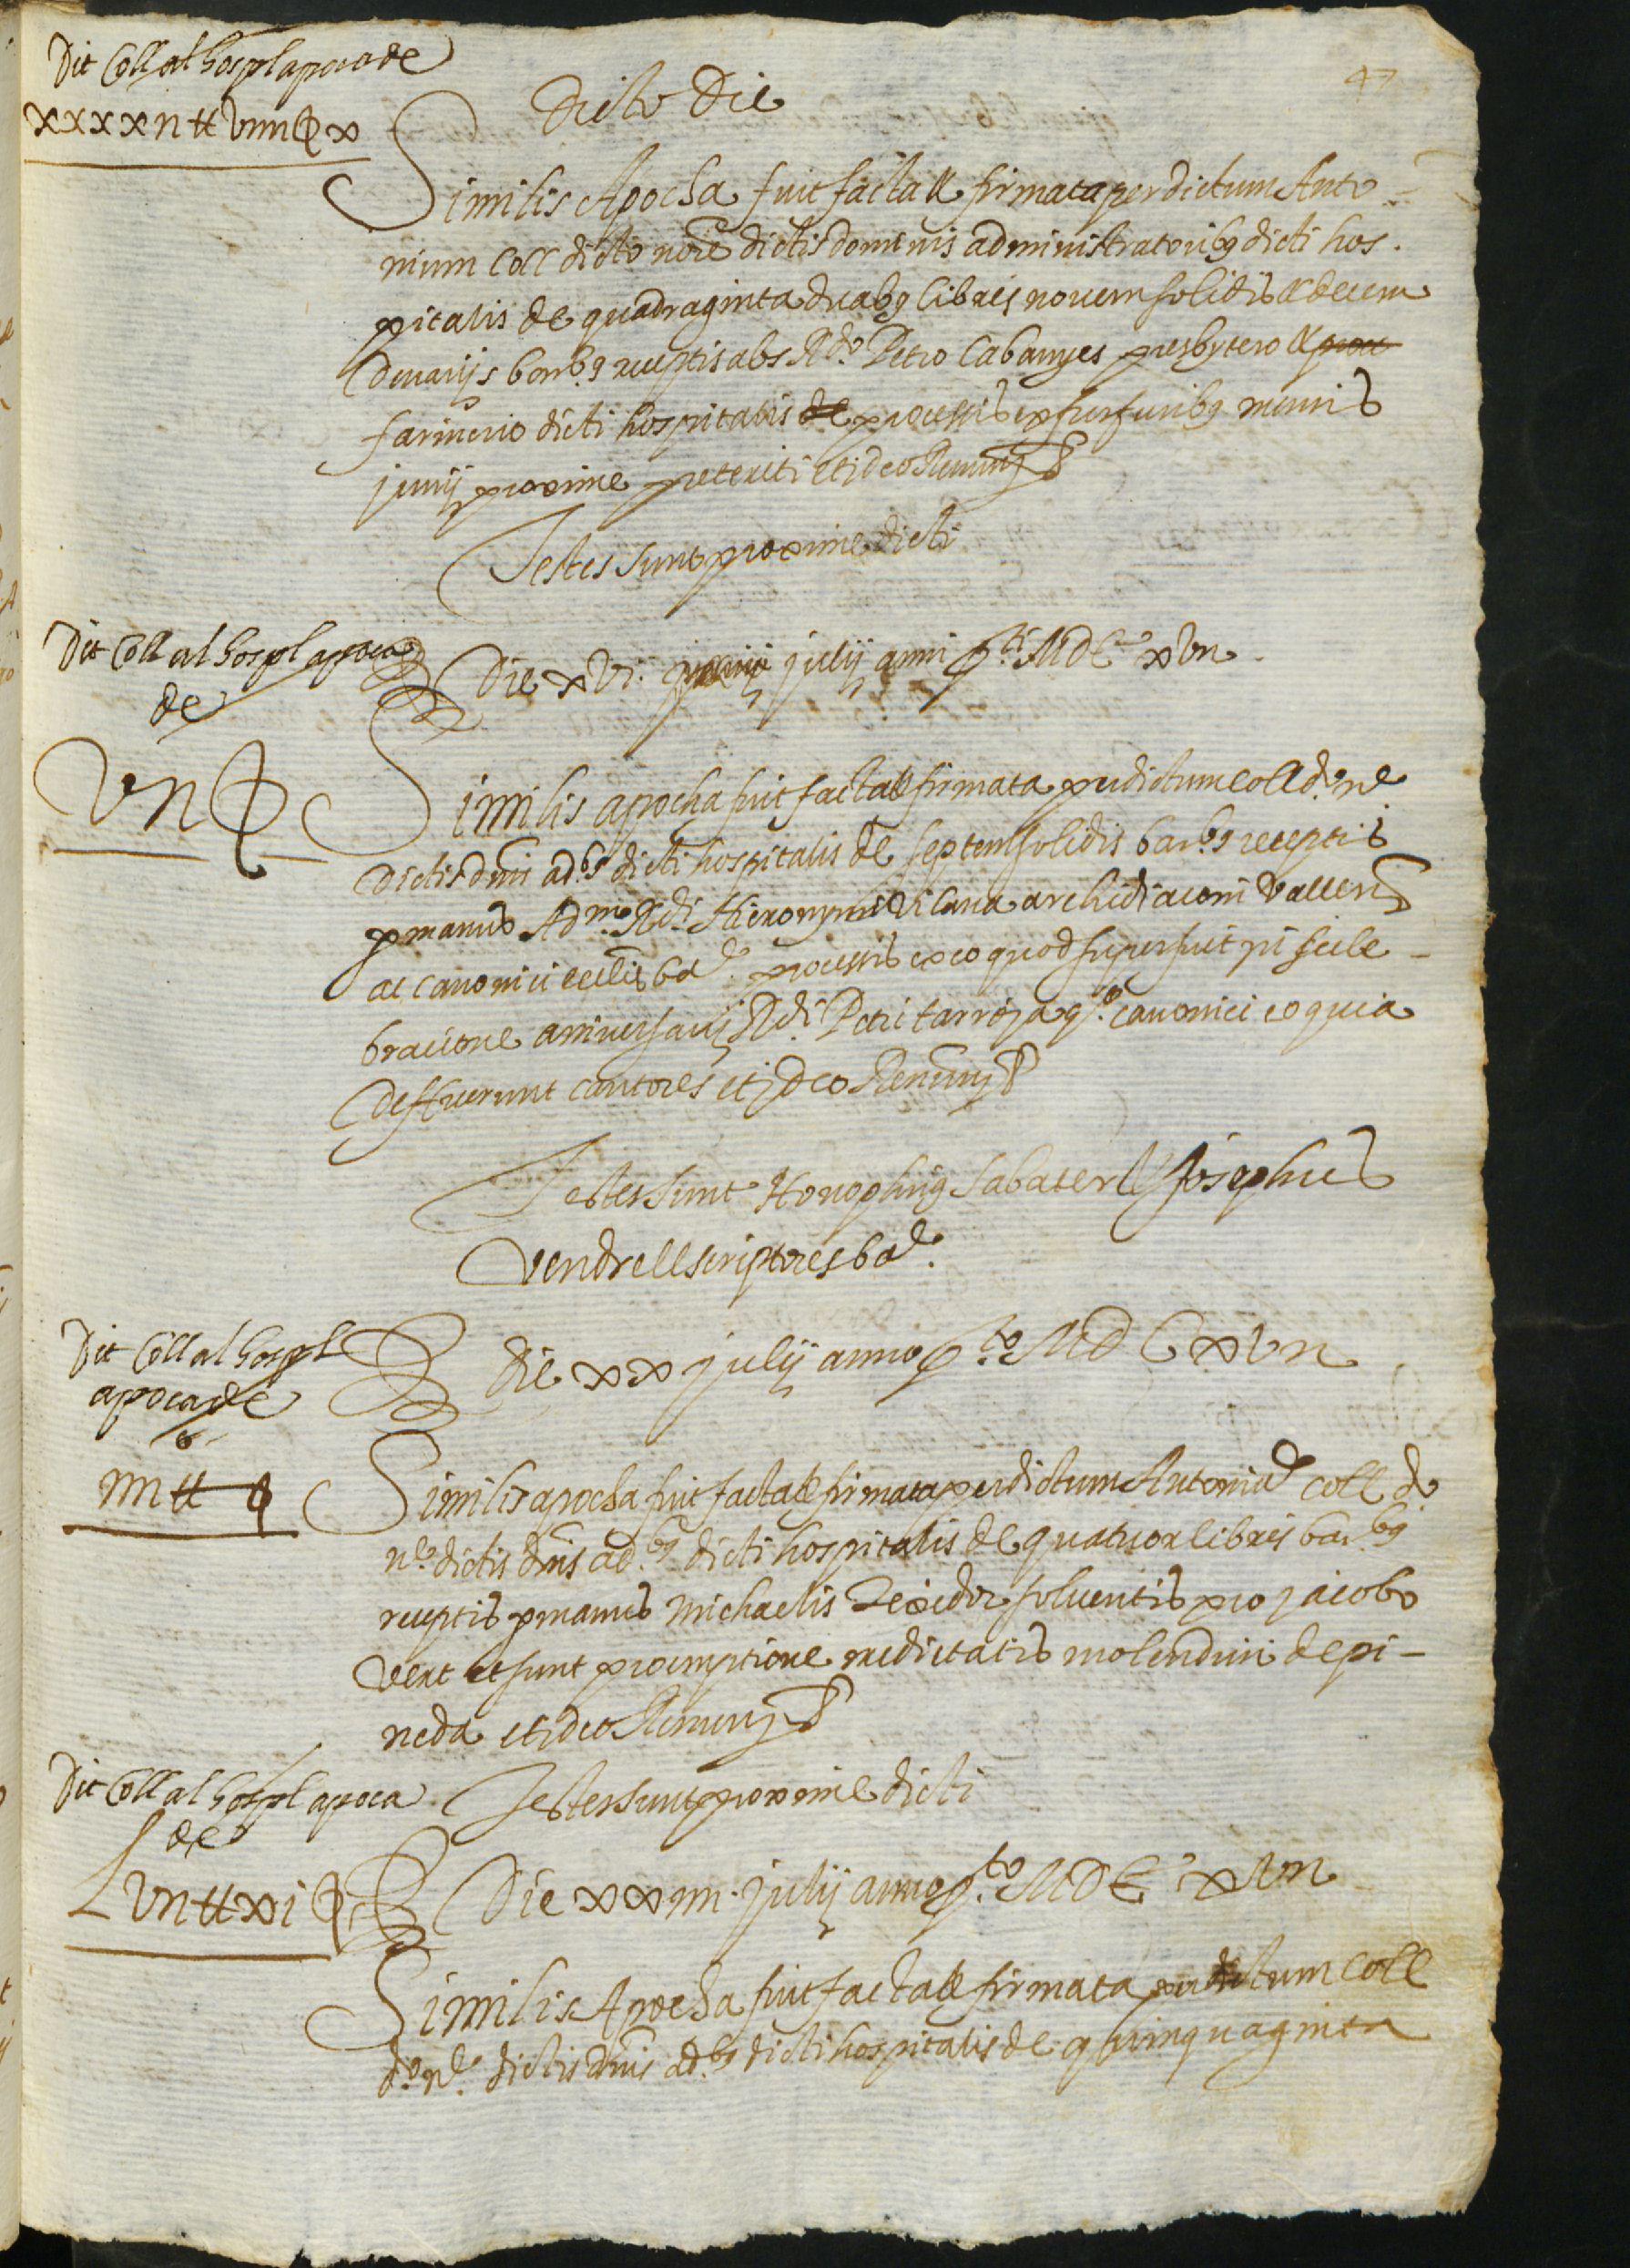 47
Dit Coll al hospl apoca de
xxxxii tt viiii ꝑ x
Dicto Die
Similis Apocha fuit facta & firmata per dictum Anto-
nium Coll dicto noīe dictis dominis administratoribꝯ dicti hos-
pitalis de quadraginta duabꝯ libris novem solidis & decem
denarijs bar.bꝯ receptis abs R.do Petro Cabanyes presbytero & procu
farinerio dicti hospitalis de processis ex furfuribꝯ mensis
junij proxime preteriti et ideo Renuny
Testes sunt proxime dicti
Dit Coll al hospl apoca
de
vii ꝑ
Die xvi. junij julij anni p.ti MDC xvii.
Similis apocha fuit facta & firmata per dictum Coll d.o n.e
dictis dnis ad.bꝯ dicti hospitalis de septem solidis bar.bꝯ receptis
p manus Ad.m R.di Hieronymi Vilana archidiaconi Vallen
ac canonici ecclie bā. processis ex eo quod superfuit in sele-
bracione aniversarij R.di Petri tarroja q.o canonici eo quia
deffuerunt cantores et ideo Renuny
Testes sunt Honophriꝯ Sabater & Josephus
Vendrell scriptores bā.
Dit Coll al hospl
apoca de
iiii tt ꝑ
Die xx julij anno p.to MDC xvii
Similis apocha fuit facta & firmata per dictum Antoniū Coll d.o
n.e dictis dnis ad.bꝯ dicti hospitalis de quatuor libris bar.bꝯ
receptis p manus Michaelis Teixidor solventis pro jacobo
Vent et sunt pro emptione medietatis molendini de pi-
neda et ideo Renuny
Testes sunt proxime dicti
Dit Coll al hospl apoca
de
Lvii tt xi ꝑ
Die xxiiii julij anno p.to MDC xvii
Similis Apocha fuit facta & firmata per dictum Coll
d.o n.e dictis dnis ad.bꝯ dicti hospitalis de quinquaginta